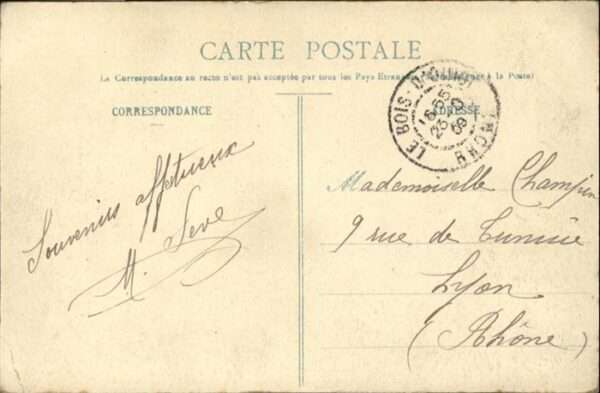 CARTE POSTALE
La Correspondance au recto n'est pas acceptée par tous les Pays Etrangers à la Poste)
CORRESPONDANCE
ADRESSE
LE BOIS-D'OINGT
16 55
23
09
RHONE
Souvenirs affectueux
M. Seve
Mademoiselle Champin
9 rue de Tunisie
Lyon
(Rhône)